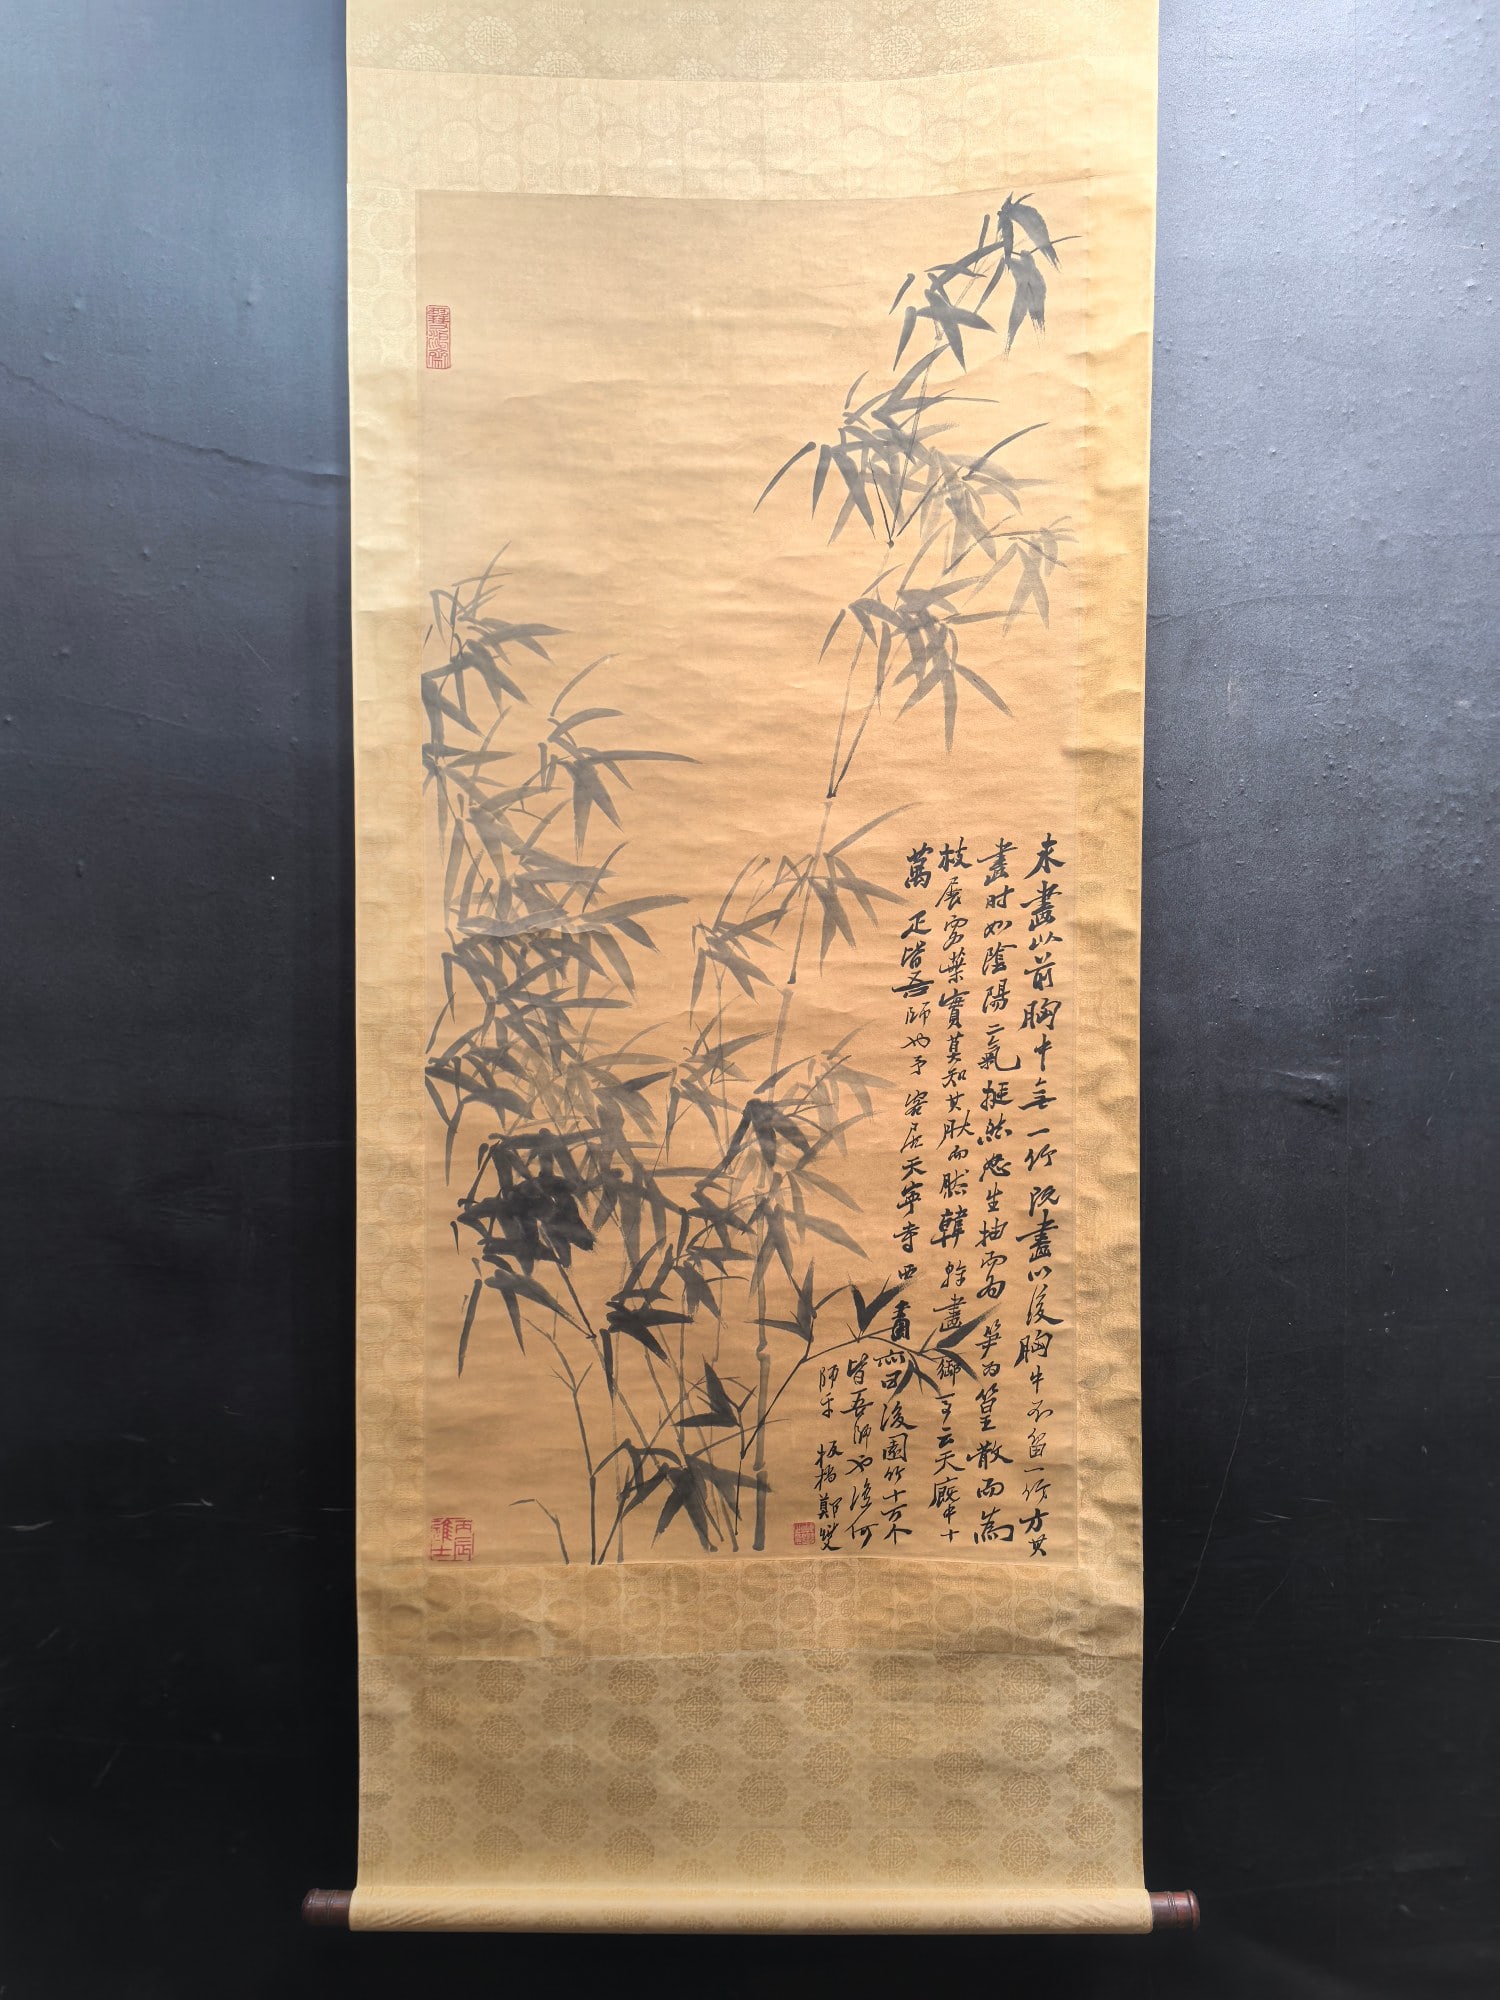 未畫以前胸中無一竹既畫以後胸中不留一竹方其
畫时如陰陽二氣挺然怒生抽而為笋為篁散而為
枝展為葉實莫知其然而然韓幹畫御馬云天廐中十
萬疋皆吾師也予客居天寧寺西書齋後園竹十万个
皆吾師也復何
師乎 板橋鄭燮
丙辰進士